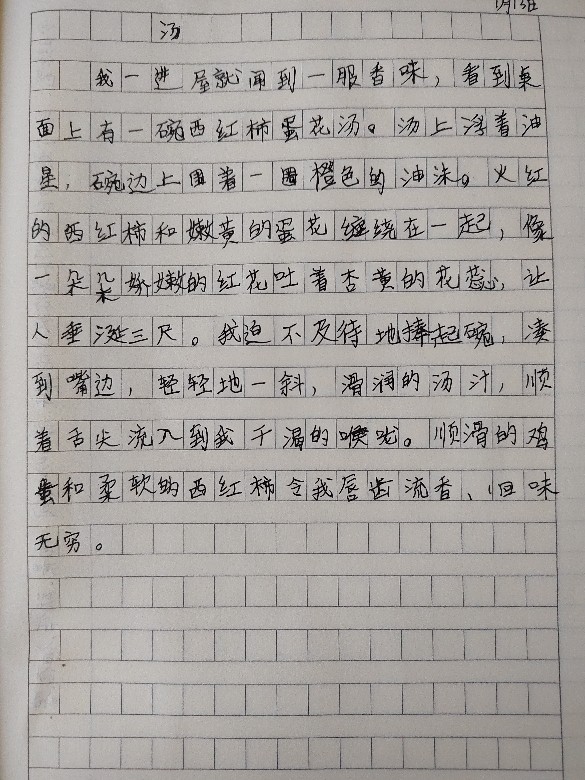 汤
我一进屋就闻到一股香味，看到桌
面上有一碗西红柿蛋花汤。汤上浮着油
星，碗边上围着一圈橙色的油沫。火红
的西红柿和嫩黄的蛋花缠绕在一起，像
一朵朵娇嫩的红花吐着杏黄的花蕊，让
人垂涎三尺。我迫不及待地捧起碗，凑
到嘴边，轻轻地一斜，滑润的汤汁，顺
着舌尖流入到我干渴的喉咙。顺滑的鸡
蛋和柔软的西红柿令我唇齿流香、回味
无穷。